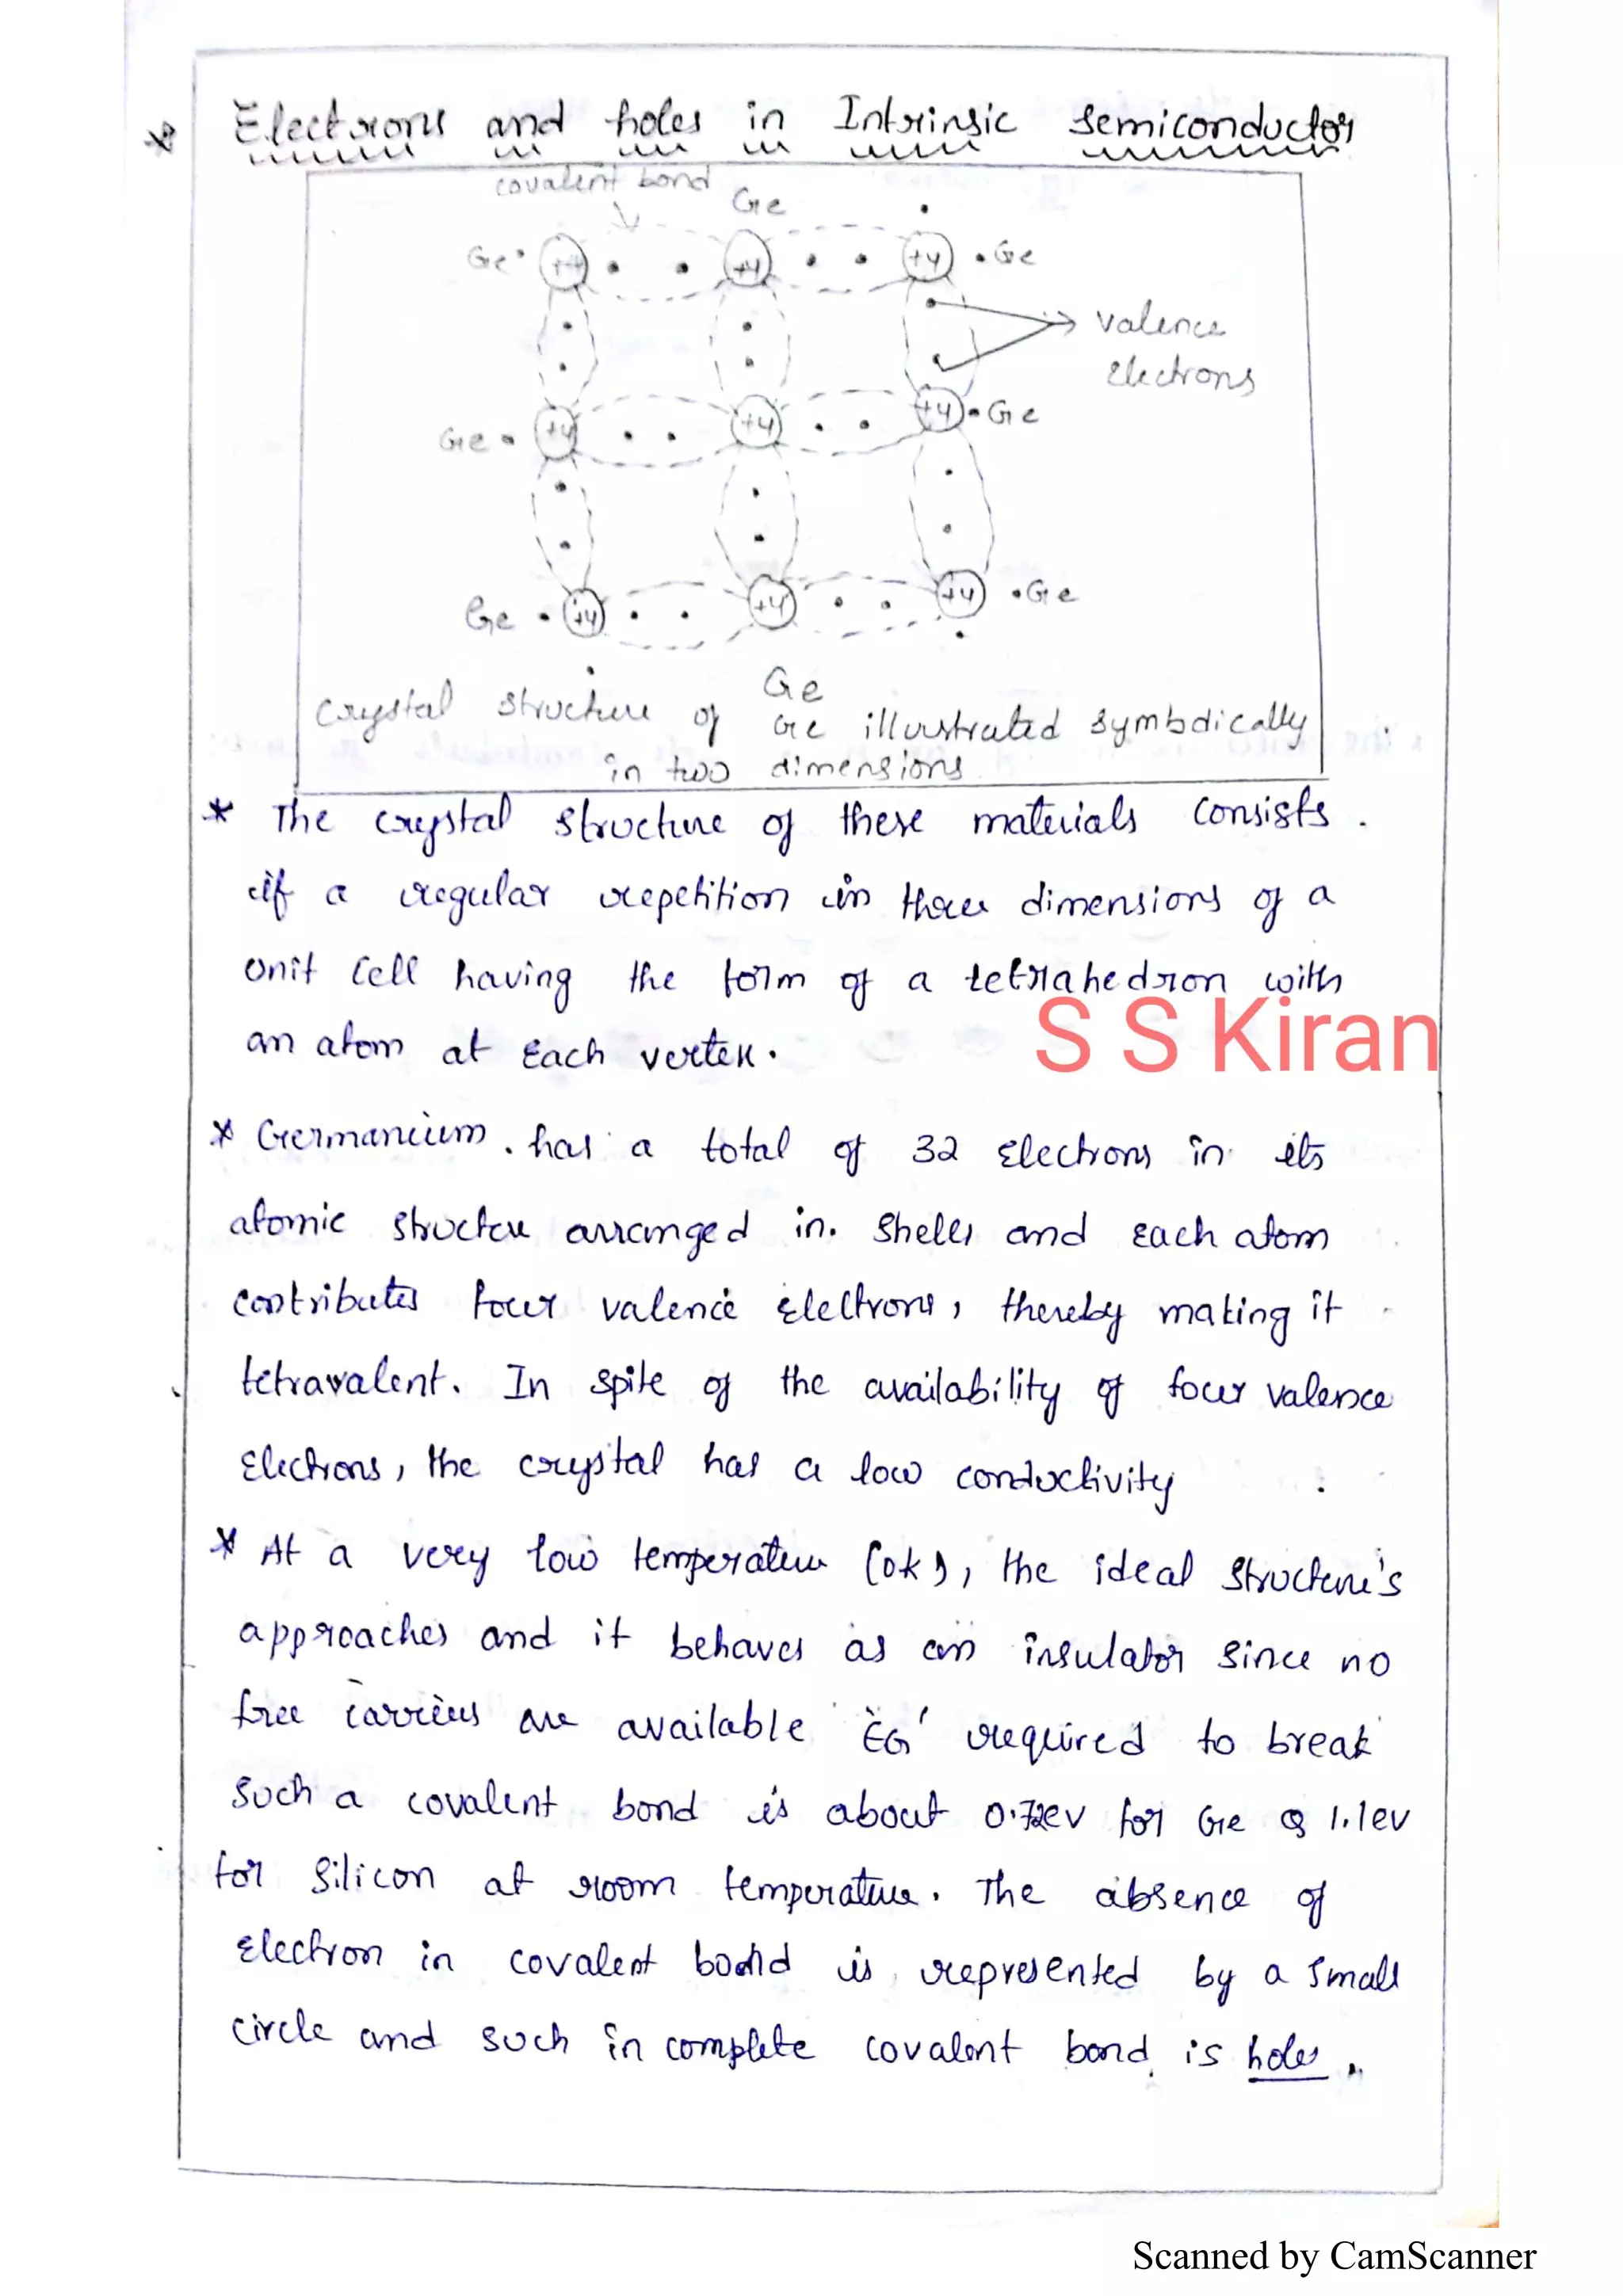 Electrons and holes in Intrinsic Semiconductor
covalent bond
Ge
Ge +4 +4 +4 Ge
valence
electrons
Ge +4 +4 +4 Ge
Ge +4 +4 +4 Ge
Ge
Crystal structure of Ge illustrated symbolically
in two dimensions
* The crystal structure of these materials consists.
of a regular repetition in three dimensions of a
Unit cell having the form of a tetrahedron with
an atom at each vertex.
S S Kiran
* Germanium. has a total of 32 electrons in its
atomic structure arranged in. shells and each atom
contributes four valence electrons, thereby making it
tetravalent. In spite of the availability of four valence
electrons, the crystal has a low conductivity
* At a very low temperature (0k), the ideal structure's
approaches and it behaves as an insulator since no
free carriers are available 'EG' required to break
such a covalent bond is about 0.72ev for Ge & 1.1ev
for silicon at room temperature. The absence of
electron in covalent bond is represented by a small
circle and such in complete covalent bond is holes.
Scanned by CamScanner